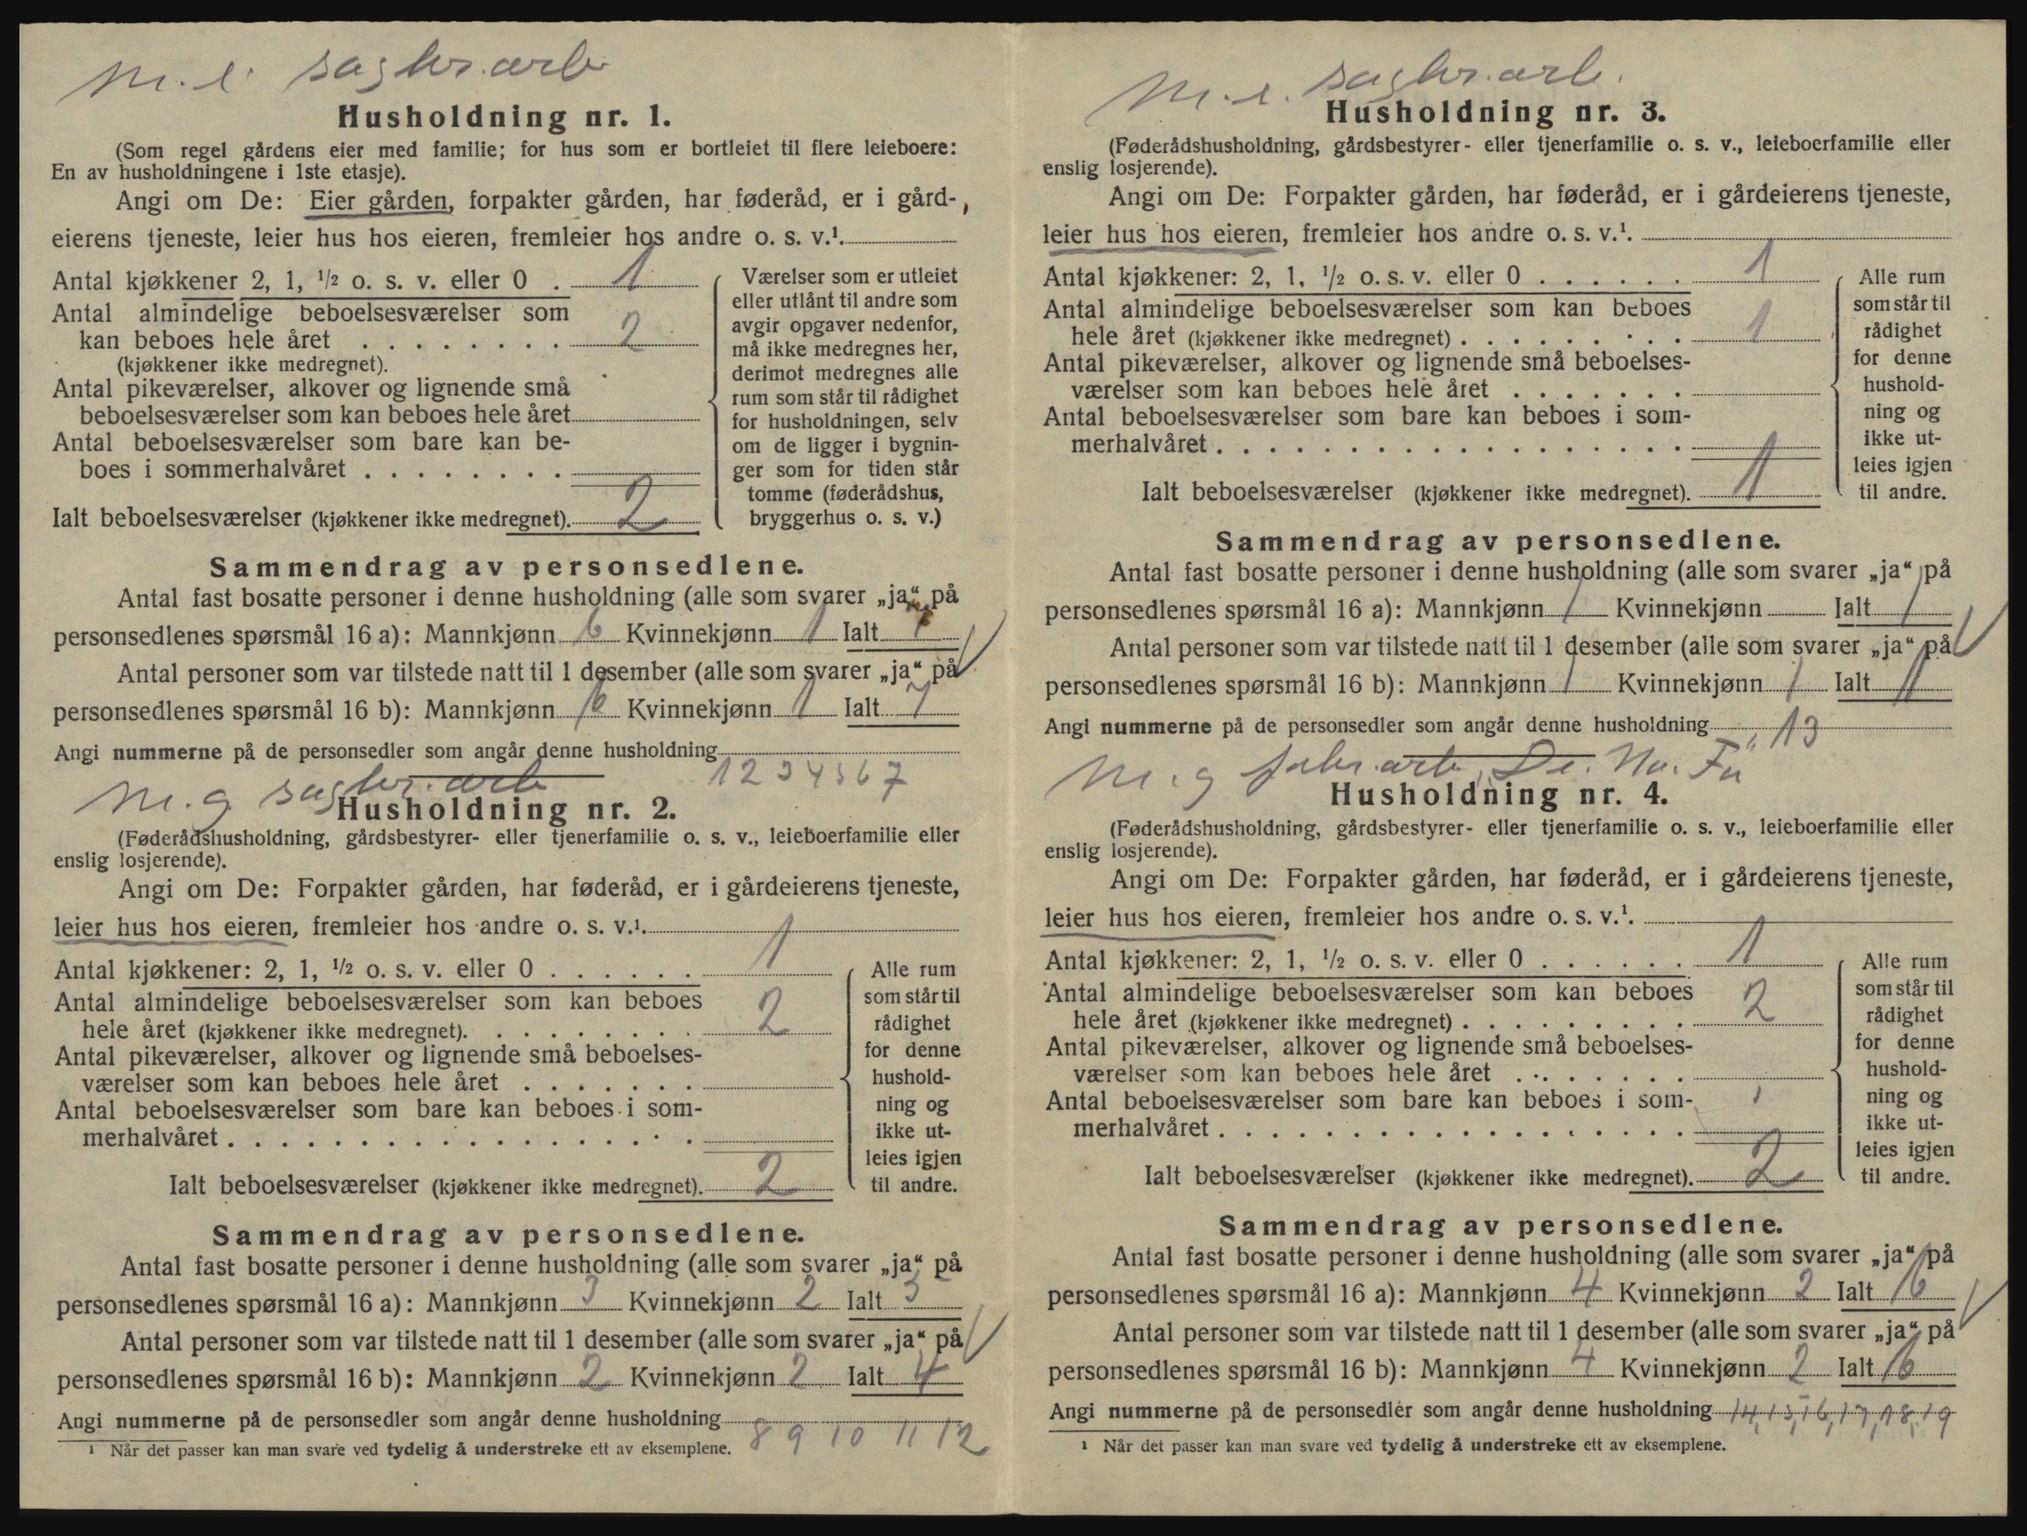 M. e. sagbr. arb.
Husholdning nr. 1.
(Som regel gårdens eier med familie; for hus som er bortleiet til flere leieboere:
En av husholdningene i 1ste etasje).
Angi om De: Eier gården, forpakter gården, har føderåd, er i gård-
eierens tjeneste, leier hus hos eieren, fremleier hos andre o. s. v.¹.
Antal kjøkkener 2, 1, ½ o. s. v. eller 0 . 1
Antal almindelige beboelsesværelser som
kan beboes hele året . . . . . . . . 2
(kjøkkener ikke medregnet).
Antal pikeværelser, alkover og lignende små
beboelsesværelser som kan beboes hele året
Antal beboelsesværelser som bare kan be-
boes i sommerhalvåret . . . . . . . .
Ialt beboelsesværelser (kjøkkener ikke medregnet). 2
Værelser som er utleiet
eller utlånt til andre som
avgir opgaver nedenfor,
må ikke medregnes her,
derimot medregnes alle
rum som står til rådighet
for husholdningen, selv
om de ligger i bygnin-
ger som for tiden står
tomme (føderådshus,
bryggerhus o. s. v.)
Sammendrag av personsedlene.
Antal fast bosatte personer i denne husholdning (alle som svarer „ja“ på
personsedlenes spørsmål 16 a): Mannkjønn 6 Kvinnekjønn 1 Ialt 7
Antal personer som var tilstede natt til 1 desember (alle som svarer „ja“ på
personsedlenes spørsmål 16 b): Mannkjønn 6 Kvinnekjønn 1 Ialt 7
Angi nummerne på de personsedler som angår denne husholdning
1 2 3 4 5 6 7
M. g sagbr. arb
Husholdning nr. 2.
(Føderådshusholdning, gårdsbestyrer- eller tjenerfamilie o. s. v., leieboerfamilie eller
enslig losjerende).
Angi om De: Forpakter gården, har føderåd, er i gårdeierens tjeneste,
leier hus hos eieren, fremleier hos andre o. s. v.¹.
Antal kjøkkener: 2, 1, ½ o. s. v. eller 0 . . . . . . 1
Antal almindelige beboelsesværelser som kan beboes
hele året (kjøkkener ikke medregnet). . . . . . . . . 2
Antal pikeværelser, alkover og lignende små beboelses-
værelser som kan beboes hele året . . . . . . .
Antal beboelsesværelser som bare kan beboes i som-
merhalvåret . . . . . . . . . . . . . . . . . .
Ialt beboelsesværelser (kjøkkener ikke medregnet). 2
Alle rum
som står til
rådighet
for denne
hushold-
ning og
ikke ut-
leies igjen
til andre.
Sammendrag av personsedlene.
Antal fast bosatte personer i denne husholdning (alle som svarer „ja“ på
personsedlenes spørsmål 16 a): Mannkjønn 3 Kvinnekjønn 2 Ialt 5
Antal personer som var tilstede natt til 1 desember (alle som svarer „ja“ på
personsedlenes spørsmål 16 b): Mannkjønn 2 Kvinnekjønn 2 Ialt 4
Angi nummerne på de personsedler som angår denne husholdning
8 9 10 11 12
¹ Når det passer kan man svare ved tydelig å understreke ett av eksemplene.
M. e. sagbr. arb.
Husholdning nr. 3.
(Føderådshusholdning, gårdsbestyrer- eller tjenerfamilie o. s. v., leieboerfamilie eller
enslig losjerende).
Angi om De: Forpakter gården, har føderåd, er i gårdeierens tjeneste,
leier hus hos eieren, fremleier hos andre o. s. v.¹.
Antal kjøkkener: 2, 1, ½ o. s. v. eller 0 . . . . . . 1
Antal almindelige beboelsesværelser som kan beboes
hele året (kjøkkener ikke medregnet) . . . . . . . . . 1
Antal pikeværelser, alkover og lignende små beboelses-
værelser som kan beboes hele året . . . . . . .
Antal beboelsesværelser som bare kan beboes i som-
merhalvåret . . . . . . . . . . . . . . . . . .
Ialt beboelsesværelser (kjøkkener ikke medregnet). 1
Alle rum
som står til
rådighet
for denne
hushold-
ning og
ikke ut-
leies igjen
til andre.
Sammendrag av personsedlene.
Antal fast bosatte personer i denne husholdning (alle som svarer „ja“ på
personsedlenes spørsmål 16 a): Mannkjønn 1 Kvinnekjønn Ialt 1
Antal personer som var tilstede natt til 1 desember (alle som svarer „ja“ på
personsedlenes spørsmål 16 b): Mannkjønn 1 Kvinnekjønn 1 Ialt 1
Angi nummerne på de personsedler som angår denne husholdning 13
M. g fabr. arb
Husholdning nr. 4.
(Føderådshusholdning, gårdsbestyrer- eller tjenerfamilie o. s. v., leieboerfamilie eller
enslig losjerende).
Angi om De: Forpakter gården, har føderåd, er i gårdeierens tjeneste,
leier hus hos eieren, fremleier hos andre o. s. v.¹.
Antal kjøkkener: 2, 1, ½ o. s. v. eller 0 . . . . . . 1
Antal almindelige beboelsesværelser som kan beboes
hele året (kjøkkener ikke medregnet) . . . . . . . . . 2
Antal pikeværelser, alkover og lignende små beboelses-
værelser som kan beboes hele året . . . . . . .
Antal beboelsesværelser som bare kan beboes i som-
merhalvåret . . . . . . . . . . . . . . . . . .
Ialt beboelsesværelser (kjøkkener ikke medregnet). 2
Alle rum
som står til
rådighet
for denne
hushold-
ning og
ikke ut-
leies igjen
til andre.
Sammendrag av personsedlene.
Antal fast bosatte personer i denne husholdning (alle som svarer „ja“ på
personsedlenes spørsmål 16 a): Mannkjønn 4 Kvinnekjønn 2 Ialt 6
Antal personer som var tilstede natt til 1 desember (alle som svarer „ja“ på
personsedlenes spørsmål 16 b): Mannkjønn 4 Kvinnekjønn 2 Ialt 6
Angi nummerne på de personsedler som angår denne husholdning 14, 15, 16, 17, 18, 19
¹ Når det passer kan man svare ved tydelig å understreke ett av eksemplene.